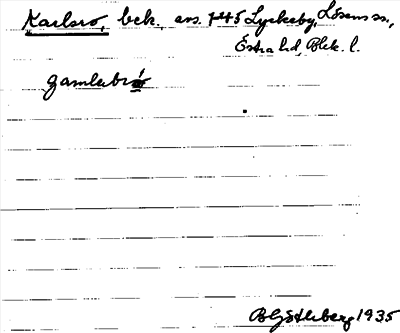 Karlsro, bek. ers. 745 Lyckeby, Lösens sn,
Östra hd, Blek. l.
gamlabró
B Götlind berg 1935